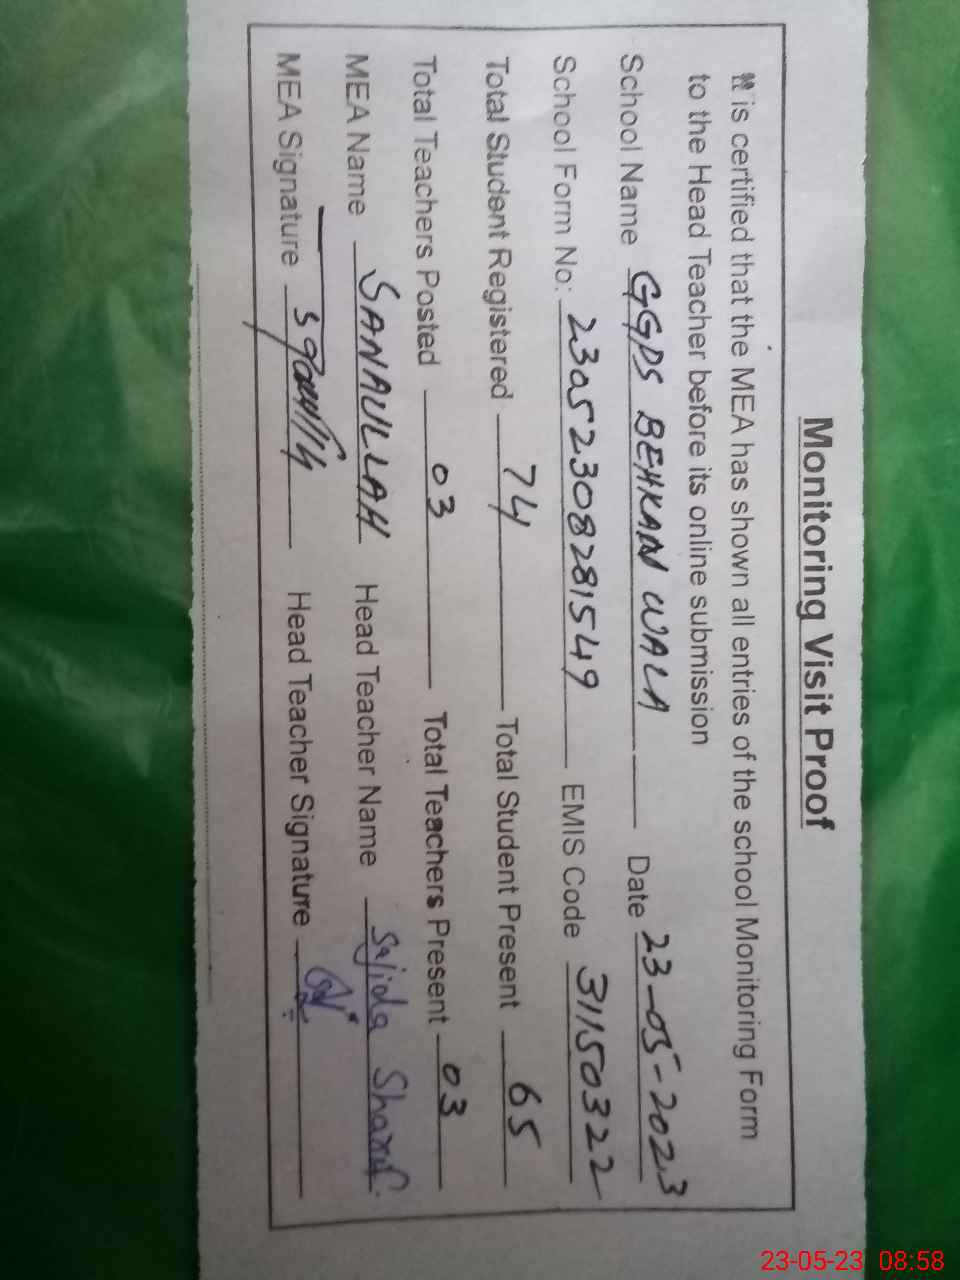 Monitoring Visit Proof
It is certified that the MEA has shown all entries of the school Monitoring Form
to the Head Teacher before its online submission
School Name GGPS BEHKAN WALA Date 23-05-2023
School Form No: 23052308281549 EMIS Code 31150322
Total Student Registered 74 Total Student Present 65
Total Teachers Posted 03 Total Teachers Present 03
MEA Name SANAULLAH Head Teacher Name Sajida Sharif.
MEA Signature Head Teacher Signature
23-05-23 08:58